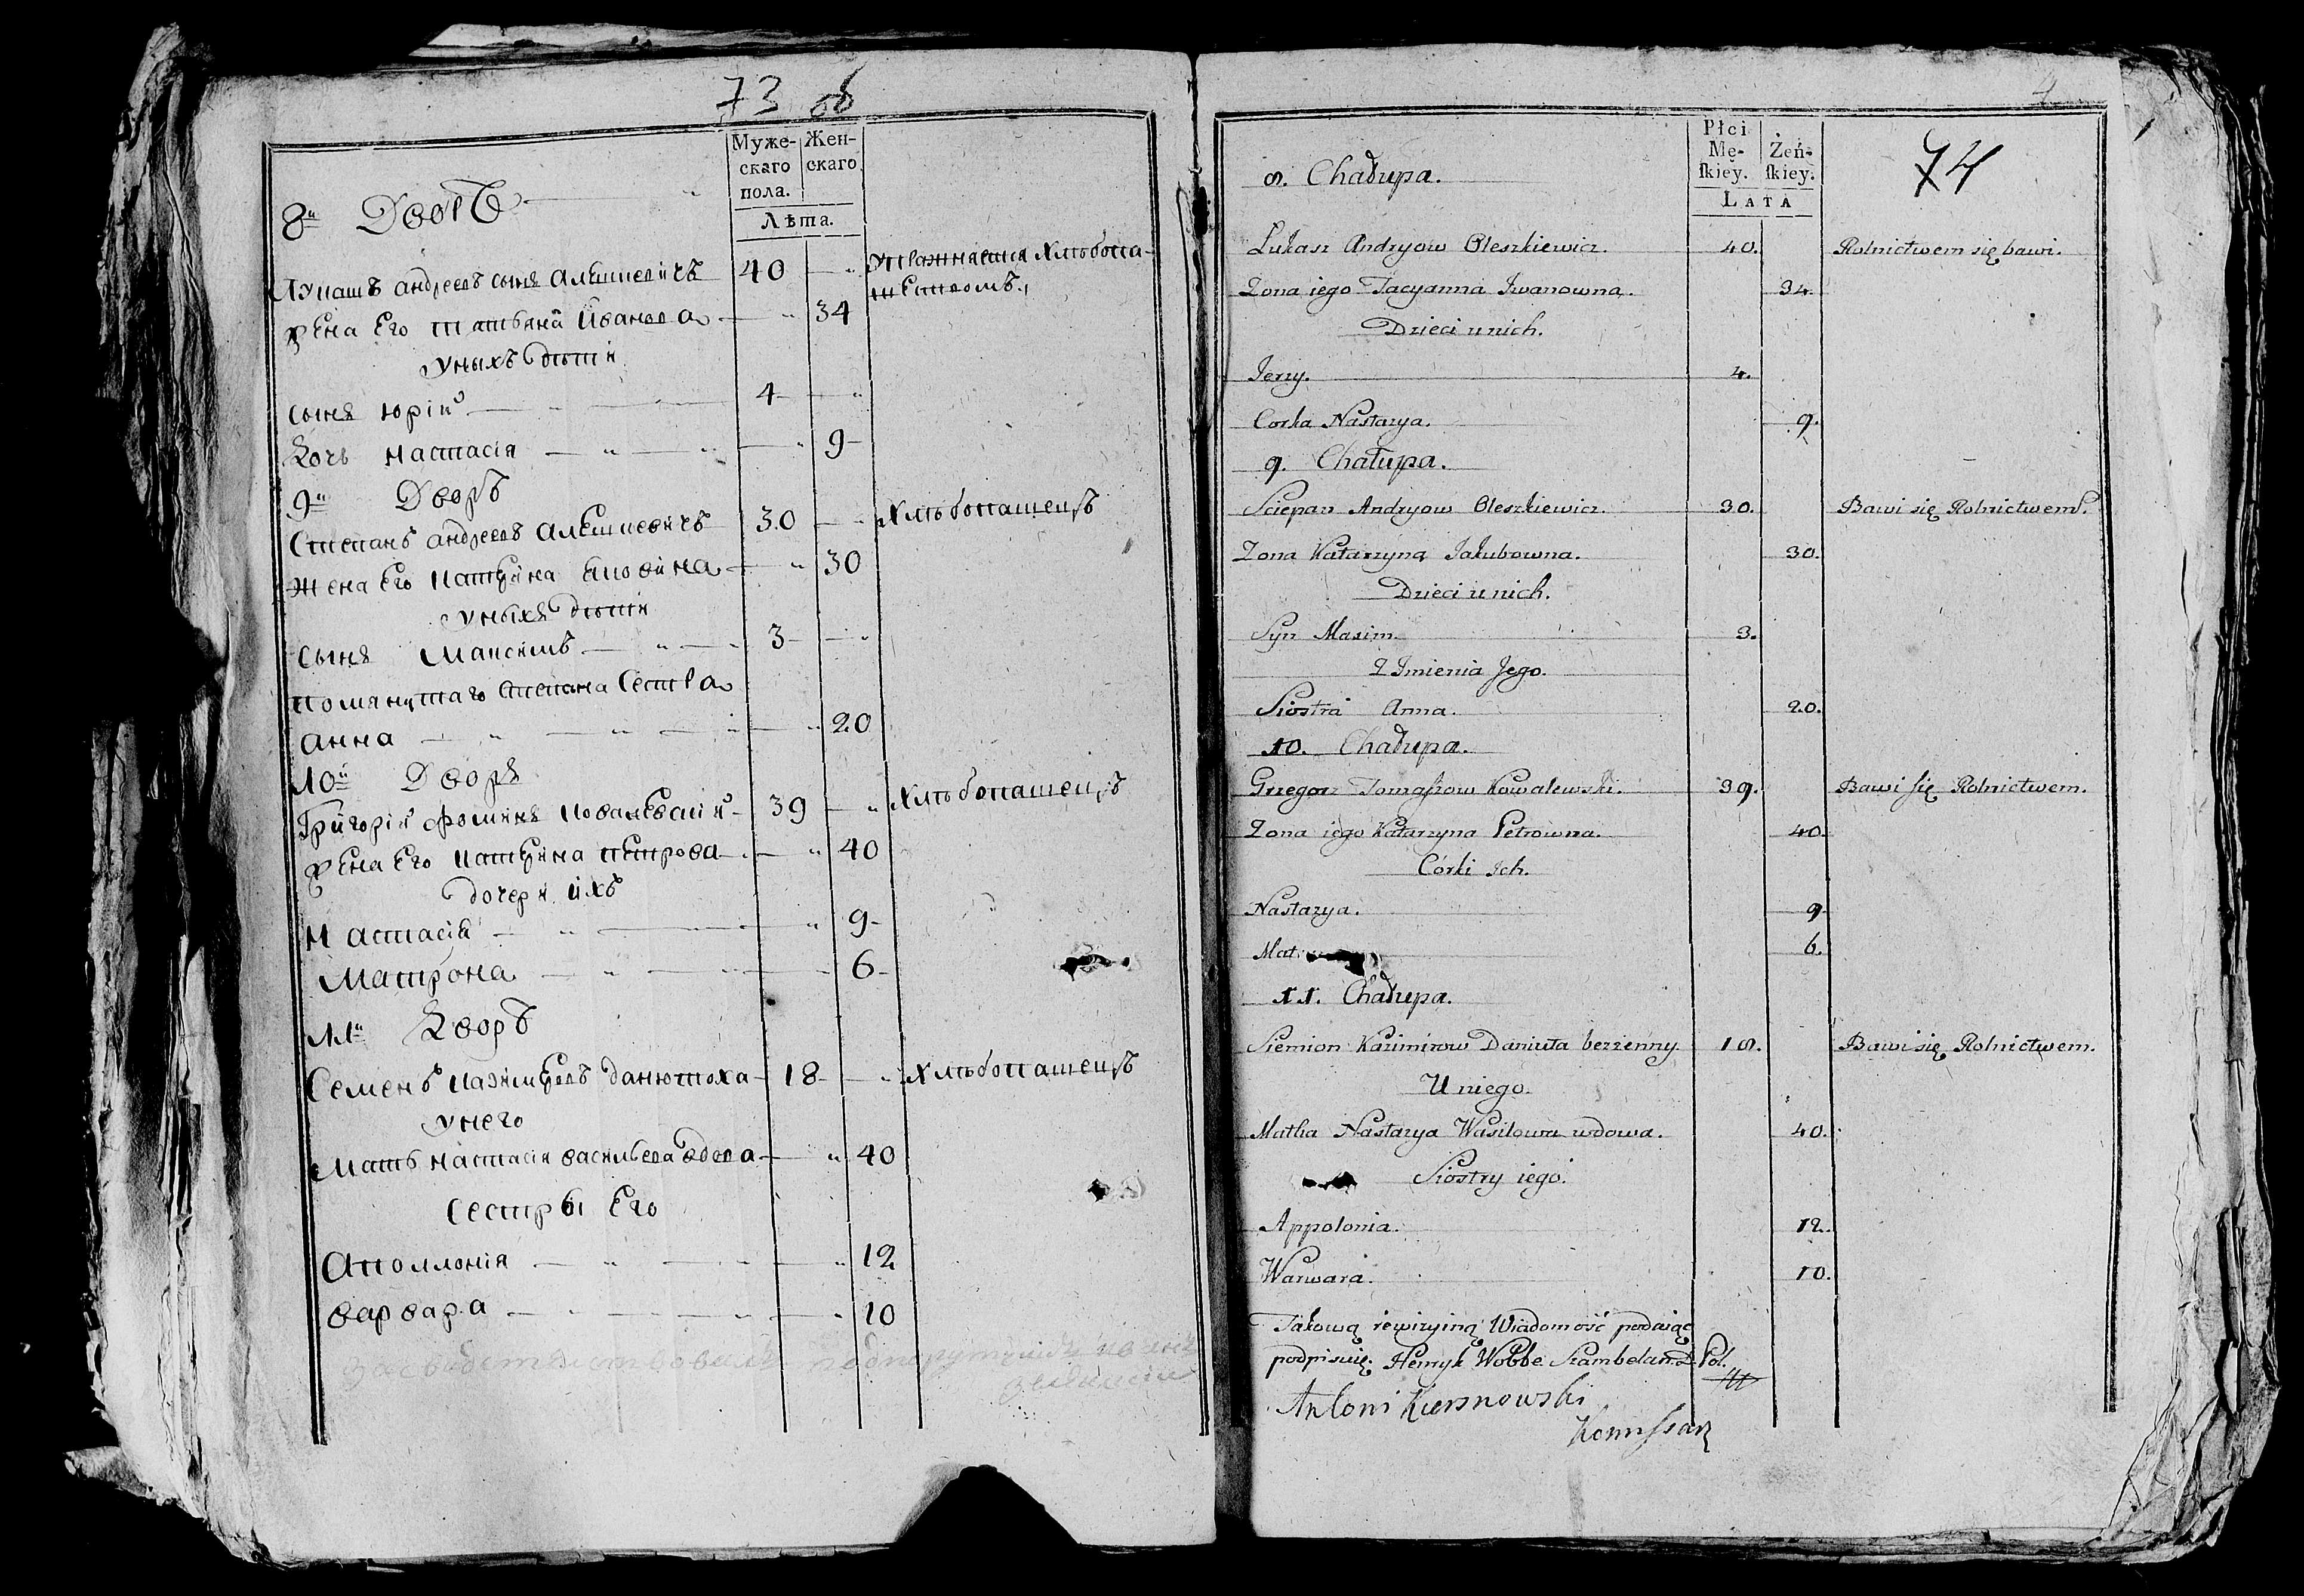 73 об
Муже- Жен-
скаго скаго
пола.
Лѣта.
8й Дворъ
Лукашъ андреевъ сынъ алешкевичъ 40 упражняется хлѣбопа-
шествомъ.
жена его татьяна иванова 34
у ныхъ дѣти
сынъ юрій 4
дочь настасія 9
9й Дворъ
Степанъ андреевъ алешкевичъ 30 хлѣбопашецъ
жена его катерина 30
у ныхъ дѣти
сынъ максимъ 3
помянутаго степана сестра
анна 20
10й Дворъ
Григорій фоминъ ковалевскій 39 хлѣбопашецъ
жена его катерина петрова 40
дочери ихъ
настасія 9
матрона 6
11й Дворъ
Семенъ казимеровъ данютоха 18 хлѣбопашецъ
у него
мать настасія васильева вдова 40
сестры его
аполлонія 12
варвара 10
4
Płci
Mę- Żeń-
skiey. skiey.
LATA
74
8. Chałupa.
Łukasz Andryow Oleszkiewicz. 40. Rolnictwem się bawi.
Zona iego Tacyanna Iwanowna. 34.
Dzieci u nich.
Jerzy. 4.
Corka Nastazya. 9.
9. Chałupa.
Sciepan Andryow Oleszkiewicz. 30. Bawi się Rolnictwem.
Zona Katarzyna Jakubowna. 30.
Dzieci u nich.
Syn Maxim 3.
Z Imienia Jego.
Siostra Anna. 20.
10. Chałupa.
Grzegorz Tomaszow Kowalewski. 39. Bawi się Rolnictwem.
Zona iego Katarzyna Petrowna. 40.
Córki Ich.
Nastazya. 9.
Mat 6.
11. Chałupa.
Siemion Kazimirow Daniuta bezżenny 18. Bawi się Rolnictwem.
U niego.
Matka Nastazya Wasilowa wdowa. 40.
Siostry iego.
Appolonia. 12.
Warwara. 10.
Takową rewizyiną Wiadomość podaiąc
podpisuię. Henryk Wobbe Szambelan D. Pol.
Antoni Kiersnowski
Komissarz